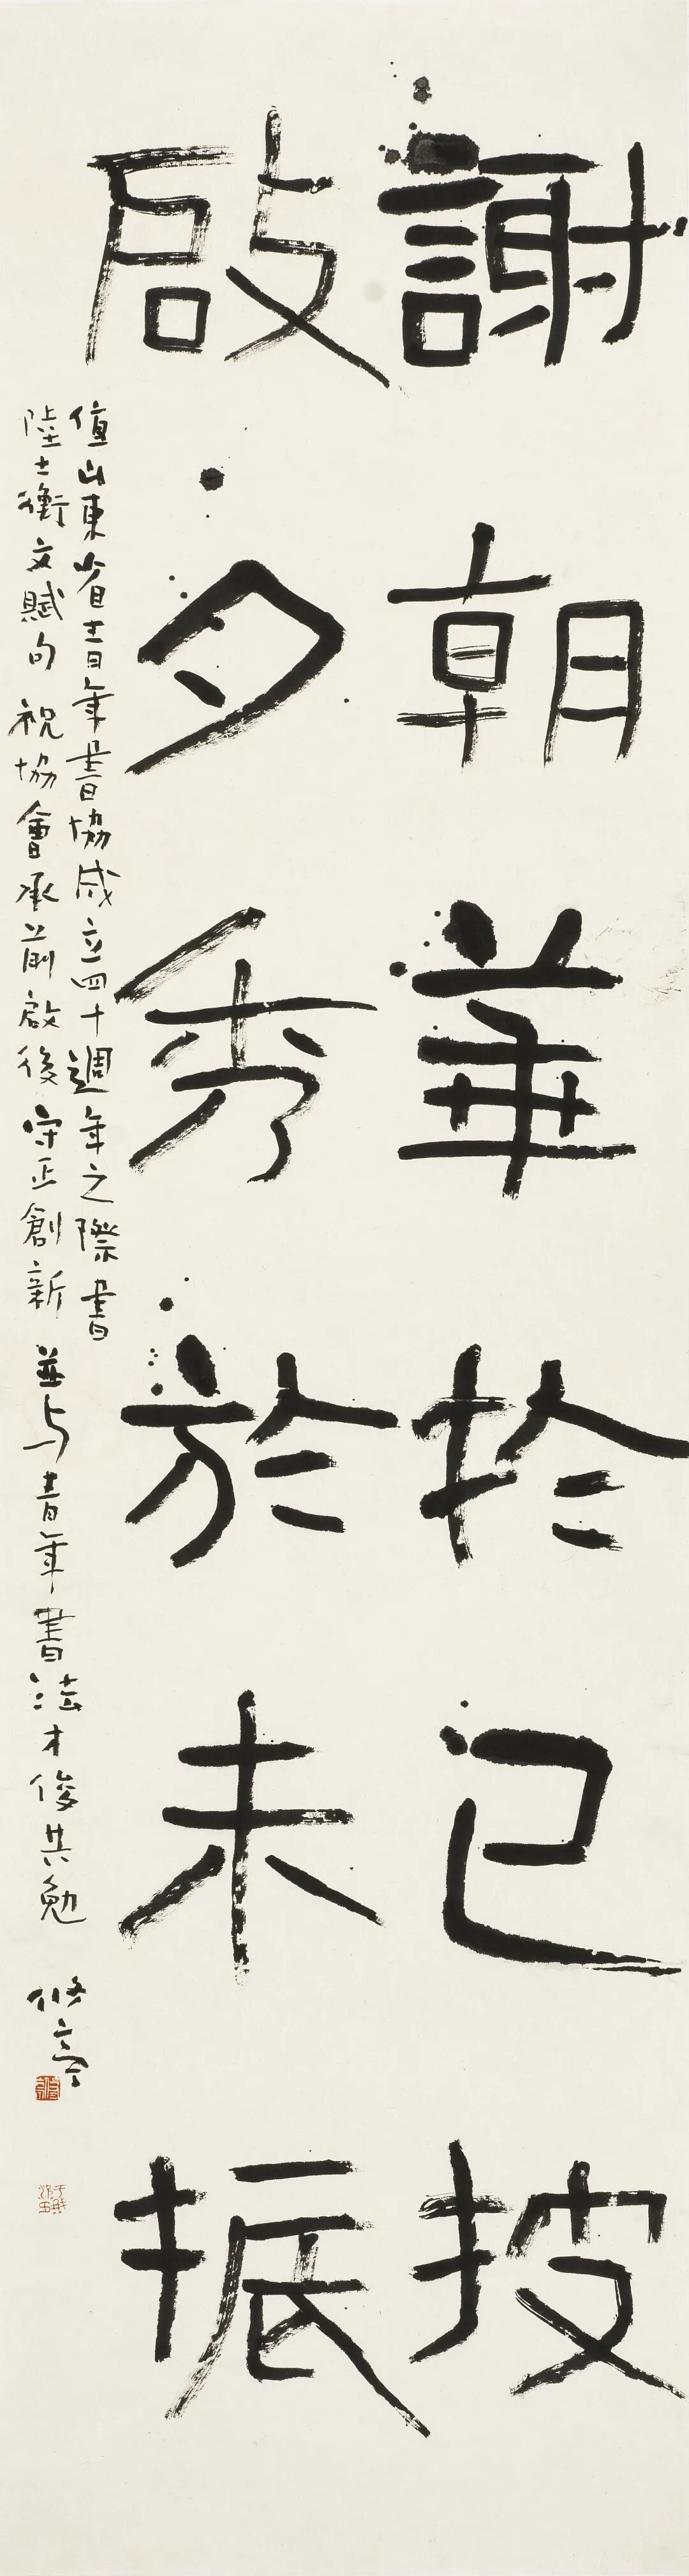 謝朝華扵已披
啟夕秀於未振
值山東省青年書協成立四十週年之際書
陸士衡文賦句祝協會承前啟後守正創新並与青年書法才俊共勉
修亭